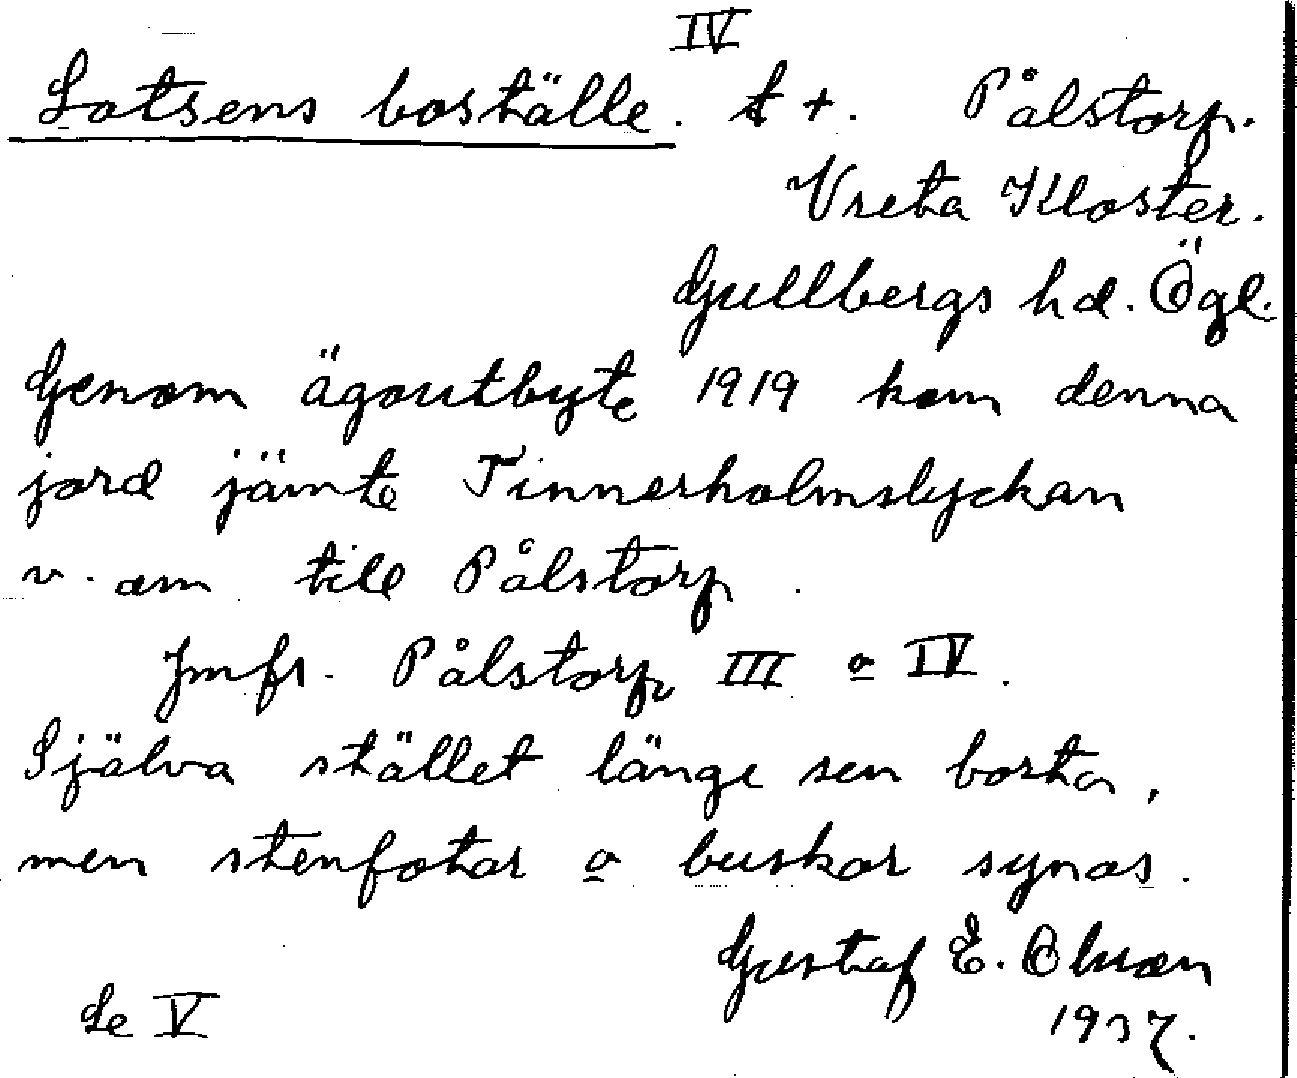 IV
Lotsens boställe. t +. Pålstorp.
Vreta Kloster.
Gullbergs hd. Ögl.
Genom ägoutbyte 1919 kom denna
jord jämte Tinnerholmslyckan
v. om till Pålstorp.
Jmfr. Pålstorp III o IV.
Själva stället länge sen borta,
men stenfotar o buskar synas.
Gustaf E. Olsson
1937.
Se V